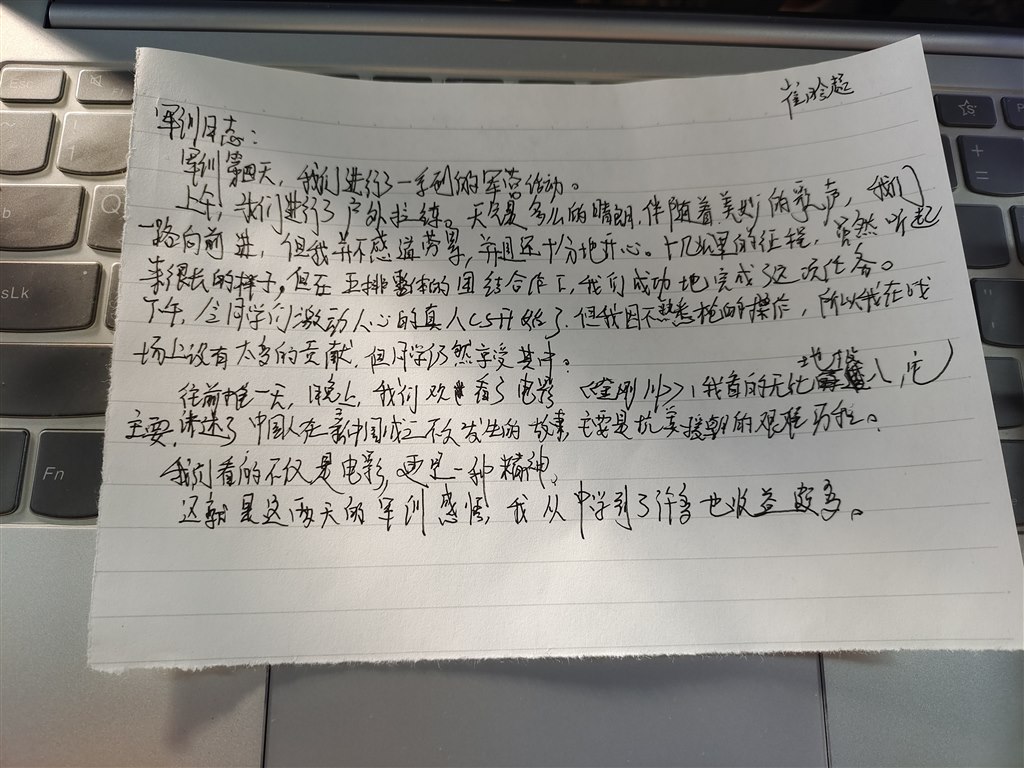 崔
军训日志：
军训第四天，我们进行了一系列的军营活动。
上午，我们进行了户外拉练。天气是多么的晴朗，伴随着美妙的歌声，我们
一路向前进，但我并不感道劳累，并且还十分地开心。十几公里的征程，虽然听起
来很长的样子，但在五排整体的团结合作下，我们成功地完成了这次任务。
下午，令同学们激动人心的真人CS开始了，但我因不熟悉枪的操作，所以我在战
场上没有太多的贡献，但同学仍然享受其中。
往前推一天，晚上，我们观看了电影《金刚川》，我看的无比地投入，它
主要讲述了中国人在新中国成立不久发生的故事，主要是抗美援朝的艰难历程。
我们看的不仅是电影，更是一种精神。
这就是这两天的军训感悟，我从中学到了许多也收益颇多。
sLk
Fn
Q
b